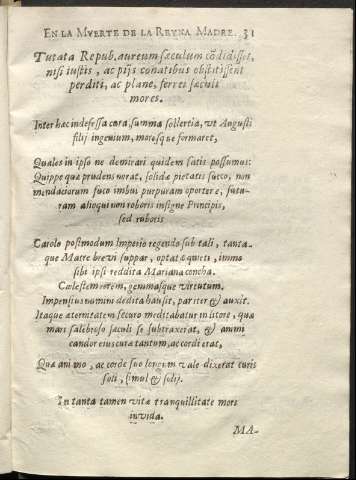 EN LA MVERTE DE LA REYNA MADRE. 31
Tutata Repub. aureum sæculum cõdidisset,
nisi iustis, ac pijs conatibus obstitissent
perditi, ac plane, ferrei sæculi
mores.
Inter hac indefessa cura, summa sollertia, vt Augusti
filij ingenium, moresque formaret,
Quales in ipso ne demirari quidem satis possumus:
Quippe quæ prudens norat, solidæ pietatis succo, non
mendaciorum fuco imbui purpuram oportere, futu-
ram alioqui non roboris insigne Principis,
sed ruboris
Carolo postmodum Imperio regendo sub tali, tanta-
que Matre brevi suppar, optatæ quieti, immo
sibi ipsi reddita Mariana concha.
Cælestem rorem, gemmasque virtutum.
Impensius numini dedita hausit, pariter & auxit.
Itaque æternitatem securo meditabatur in litore, quo
mari salebroso sæculi se subtraxerat, & animi
candor eius cura tantum, accorderat,
Quæ animo, ac corde suo longum vale dixerat curis
soli, simul & solij.
In tanta tamen vitæ tranquillitate mors
invida.
MA-